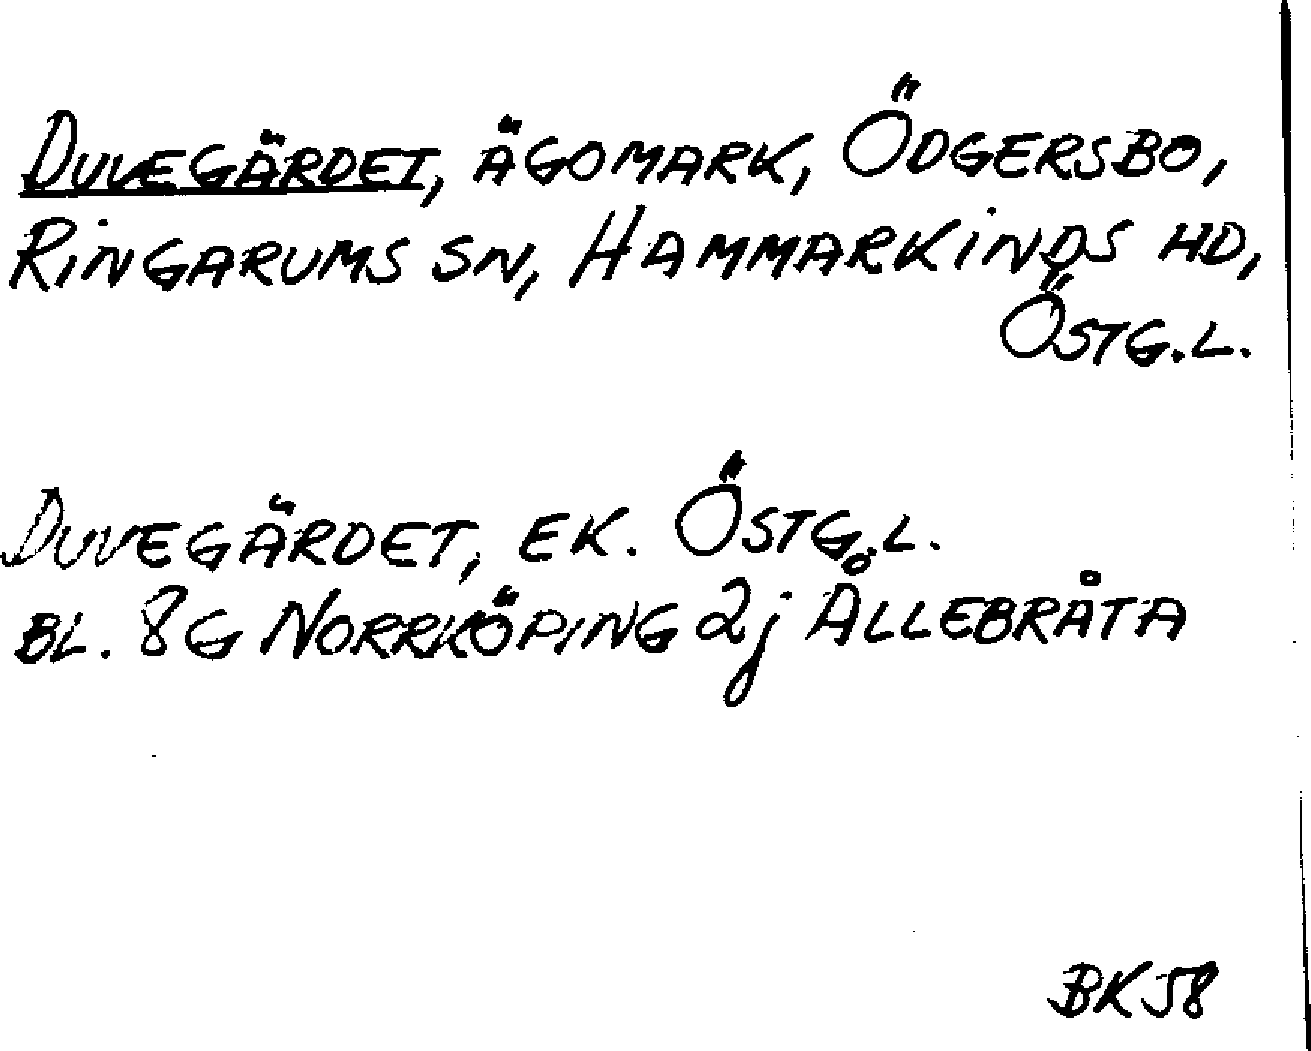 DUVEGÄRDET, ÄGOMARK, ÖDGERSBO,
RINGARUMS SN, HAMMARKINDS HD,
ÖSTG.L.
DUVEGÄRDET, EK. ÖSTG.L.
BL. 8G NORRKÖPING 2j ÅLLEBRÅTA
BK 58